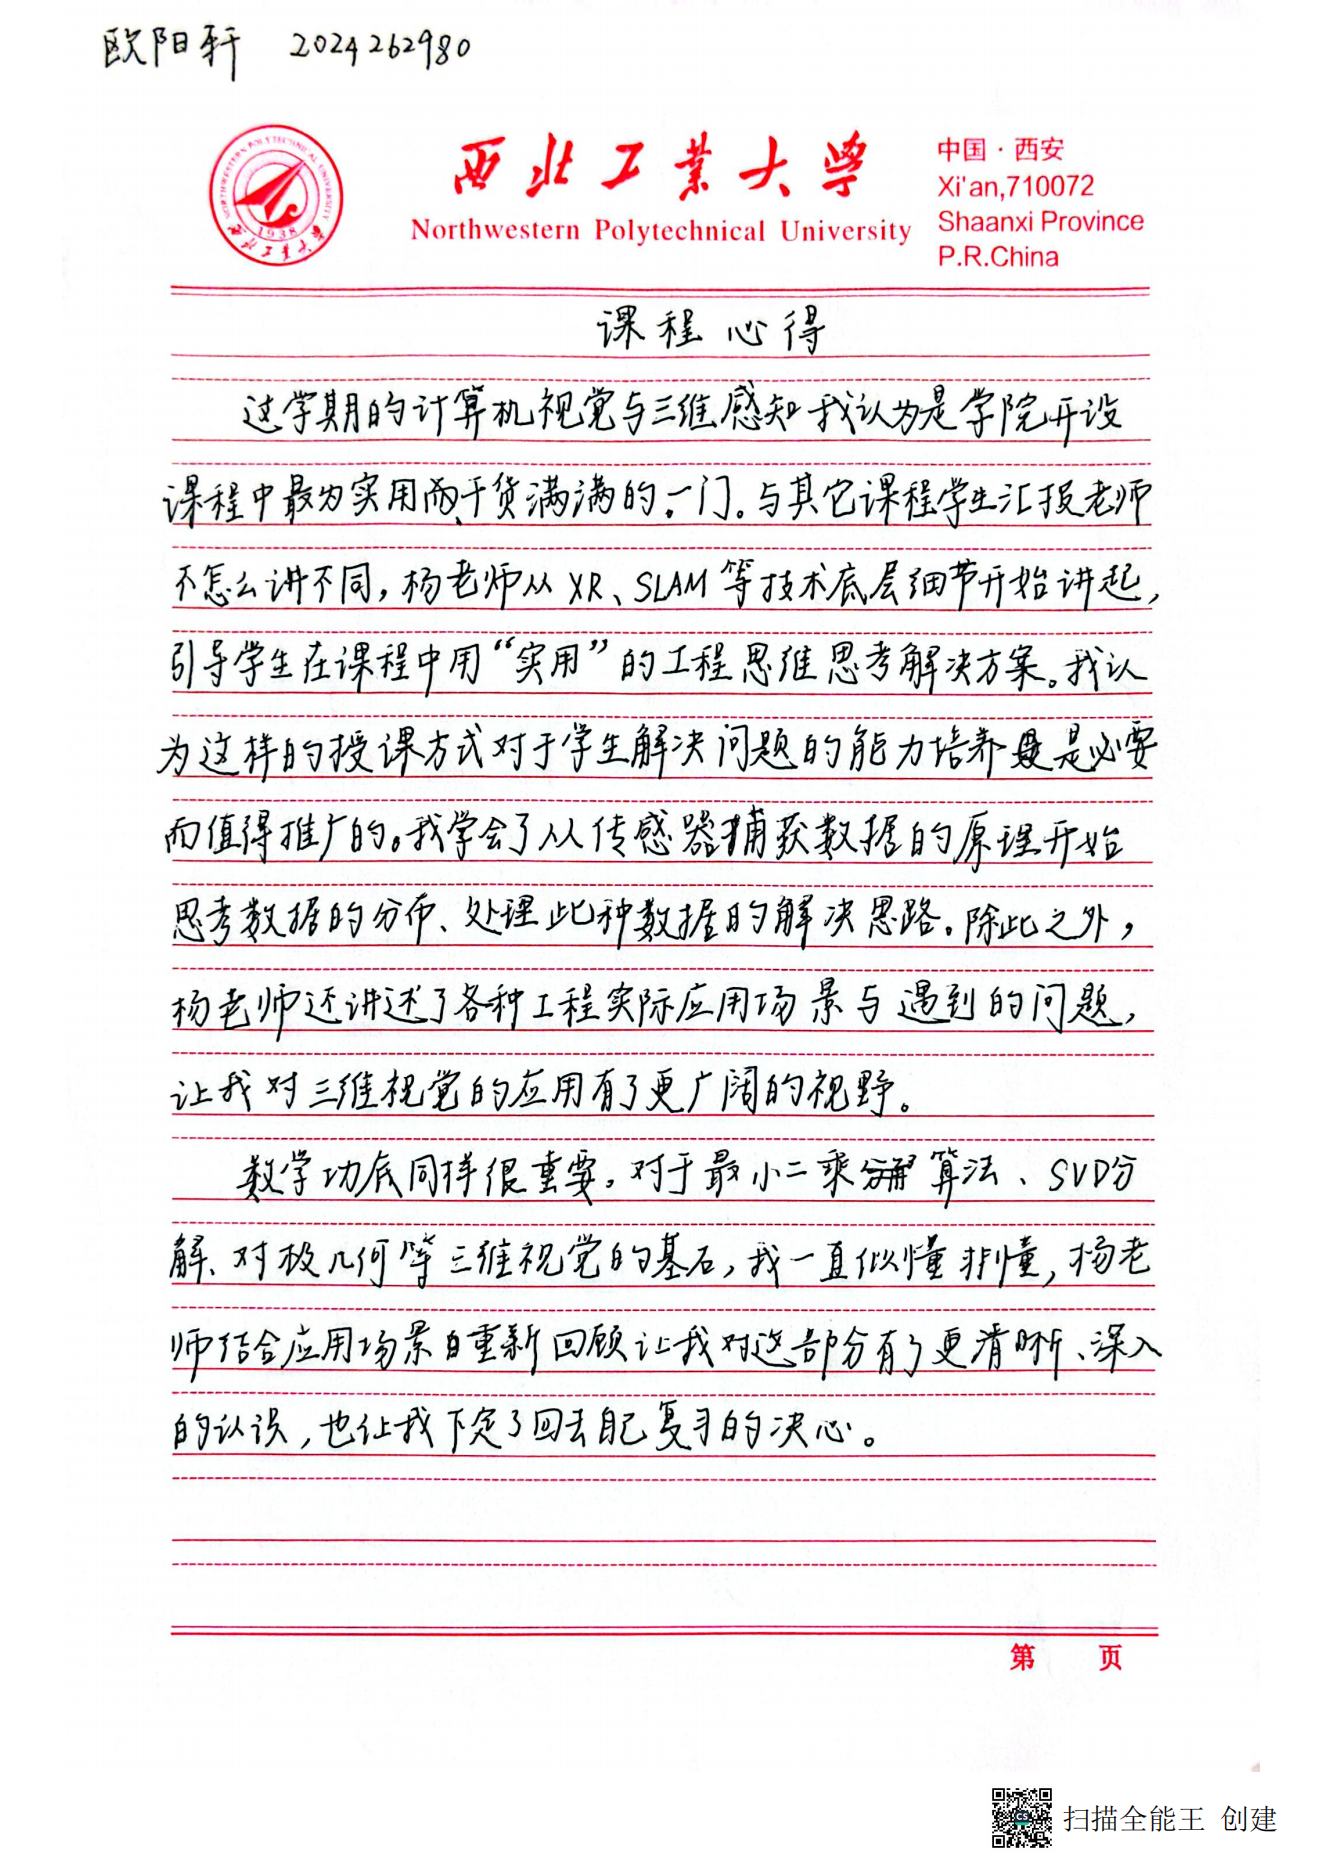 欧阳轩 2024262980
西北工业大学
Northwestern Polytechnical University
中国·西安
Xi'an,710072
Shaanxi Province
P.R.China
NORTHWESTERN POLYTECHNICAL UNIVERSITY
1938
西北工业大学
课程心得
过学期的计算机视觉与三维感知我认为是学院开设
课程中最为实用而干货满满的一门。与其它课程学生汇报老师
不怎么讲不同,杨老师从XR、SLAM等技术底层细节开始讲起,
引导学生在课程中用“实用”的工程思维思考解决方案。我认
为这样的授课方式对于学生解决问题的能力培养是必要
而值得推广的。我学会了从传感器捕获数据的原理开始
思考数据的分布、处理此种数据的解决思路。除此之外,
杨老师还讲述了各种工程实际应用场景与遇到的问题,
让我对三维视觉的应用有了更广阔的视野。
数学功底同样很重要。对于最小二乘算法、SVD分
解、对极几何等三维视觉的基石,我一直似懂非懂,杨老
师结合应用场景重新回顾让我对这部分有了更清晰、深入
的认识,也让我下定了回去自己复习的决心。
第 页
扫描全能王 创建